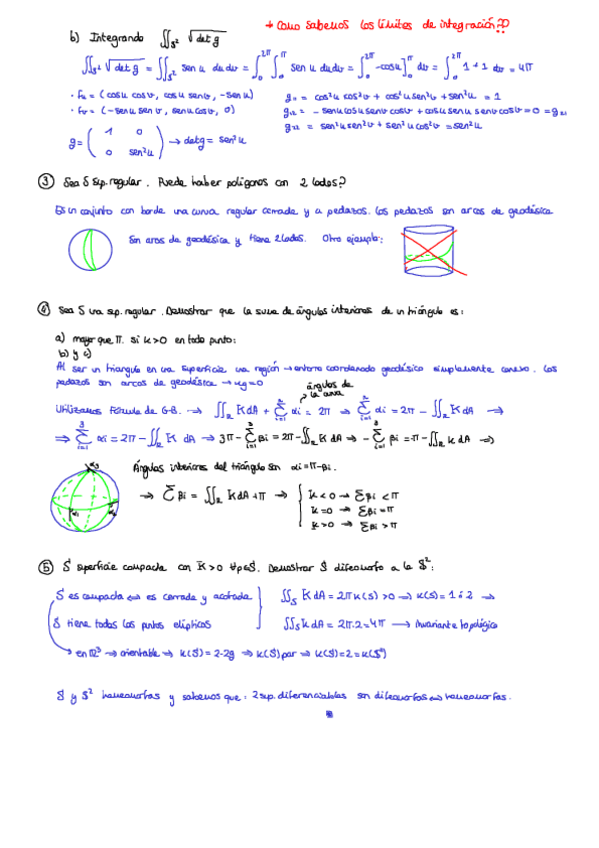 → Como sabemos los límites de integración??
b) Integrando ∬_{S²} √det g
∬_{S²} √det g = ∬_{S²} sen u du dv = ∫₀^{2π} ∫₀^{π} sen u du dv = ∫₀^{2π} -cos u]₀^{π} dv = ∫₀^{2π} 1+1 dv = 4π
· fu = (cos u cos v, cos u sen v, -sen u)
g₁₁ = cos²u cos²v + cos²u sen²v + sen²u = 1
· fv = (-sen u sen v, sen u cos v, 0)
g₁₂ = - sen u cos u sen v cos v + cos u sen u sen v cos v = 0 = g₂₁
g₂₂ = sen²u sen²v + sen²u cos²v = sen²u
g = ( 1 0
0 sen²u ) → det g = sen²u
③ Sea S sup. regular. Puede haber polígonos con 2 lados?
Es un conjunto con borde una curva regular cerrada y a pedazos. Los pedazos son arcos de geodésica
Son arcos de geodésica y tiene 2 lados. Otro ejemplo:
④ Sea S una sup. regular. Demostrar que la suma de ángulos interiores de un triángulo es:
a) mayor que π. si K>0 en todo punto:
b) y c)
Al ser un triangulo en una superficie una región → entorno coordenado geodésico simplemente conexo. Los
pedazos son arcos de geodésica → κg=0
ángulos de la curva
Utilizamos Fórmula de G-B. → ∬_R K dA + ∑_{i=1}^{3} αi = 2π ⇒ ∑_{i=1}^{3} αi = 2π - ∬_R K dA ⇒
⇒ ∑_{i=1}^{3} αi = 2π - ∬_R K dA → 3π - ∑_{i=1}^{3} βi = 2π - ∬_R K dA ⇒ - ∑_{i=1}^{3} βi = -π - ∬_R K dA ⇒
Ángulos interiores del triángulo son αi = π-βi.
⇒ ∑ βi = ∬_R K dA + π ⇒ { K<0 → ∑βi < π
K=0 ⇒ ∑βi = π
K>0 ⇒ ∑βi > π
⑤ S superficie compacta con K>0 ∀p∈S. Demostrar S difeomorfo a la S²:
S es compacta ⇔ es cerrada y acotada
∬_S K dA = 2π κ(S) > 0 ⇒ κ(S) = 1 ó 2 ⇒
S tiene todos los puntos elípticos
∬_S K dA = 2π·2 = 4π → Invariante topológico
→ en ℝ³ ⇒ orientable ⇒ κ(S) = 2-2g ⇒ κ(S) par ⇒ κ(S) = 2 = κ(S²)
S y S² homeomorfas y sabemos que: 2 sup. diferenciables son difeomorfas ⇔ homeomorfas.